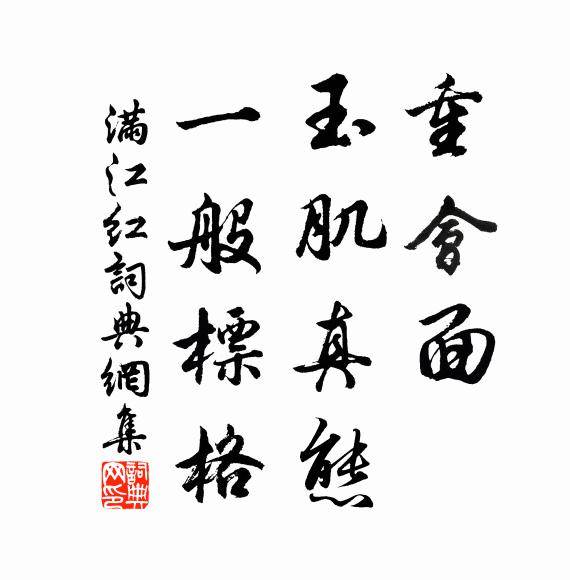 重會面
玉肌真態
一般標格
滿江紅詞典網集
詞典網印